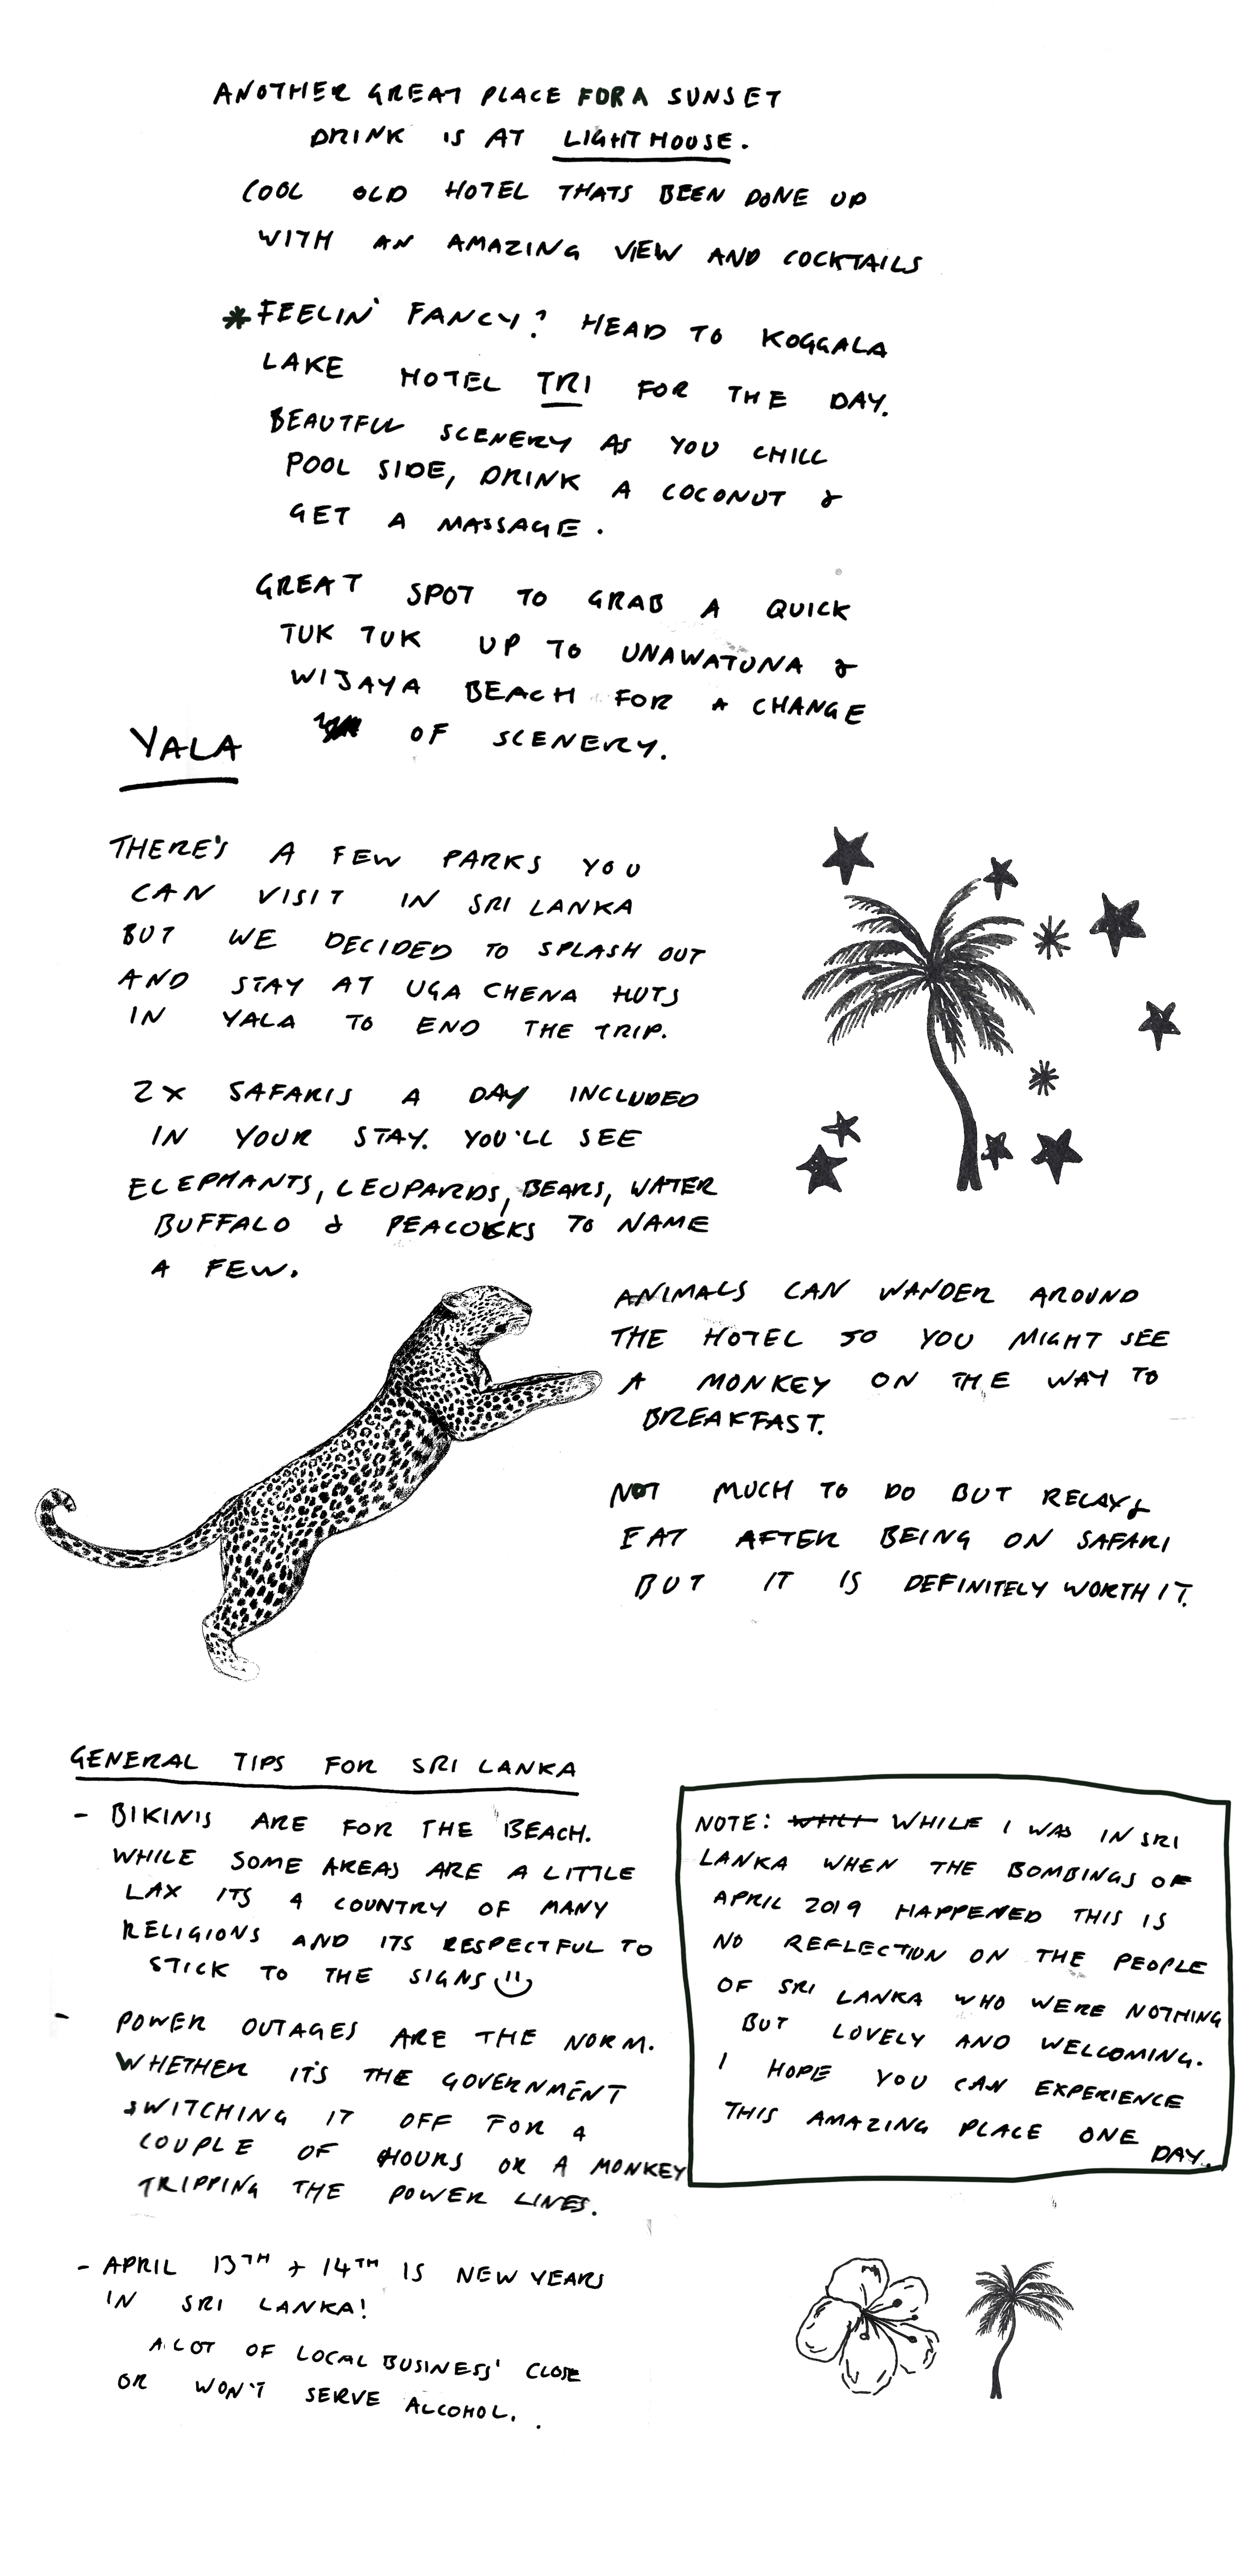 ANOTHER GREAT PLACE FOR A SUNSET
DRINK IS AT LIGHTHOUSE.
COOL OLD HOTEL THATS BEEN DONE UP
WITH AN AMAZING VIEW AND COCKTAILS
*FEELIN' FANCY? HEAD TO KOGGALA
LAKE HOTEL TRI FOR THE DAY.
BEAUTFUL SCENERY AS YOU CHILL
POOL SIDE, DRINK A COCONUT &
GET A MASSAGE.
GREAT SPOT TO GRAB A QUICK
TUK TUK UP TO UNAWATUNA &
WIJAYA BEACH FOR A CHANGE
OF SCENERY.
YALA
THERE'S A FEW PARKS YOU
CAN VISIT IN SRI LANKA
BUT WE DECIDED TO SPLASH OUT
AND STAY AT UGA CHENA HUTS
IN YALA TO END THE TRIP.
2X SAFARIS A DAY INCLUDED
IN YOUR STAY. YOU'LL SEE
ELEPHANTS, LEOPARDS, BEARS, WATER
BUFFALO & PEACOCKS TO NAME
A FEW.
ANIMALS CAN WANDER AROUND
THE HOTEL SO YOU MIGHT SEE
A MONKEY ON THE WAY TO
BREAKFAST.
NOT MUCH TO DO BUT RELAX &
EAT AFTER BEING ON SAFARI
BUT IT IS DEFINITELY WORTH IT.
GENERAL TIPS FOR SRI LANKA
- BIKINIS ARE FOR THE BEACH.
WHILE SOME AREAS ARE A LITTLE
LAX ITS A COUNTRY OF MANY
RELIGIONS AND ITS RESPECTFUL TO
STICK TO THE SIGNS
- POWER OUTAGES ARE THE NORM.
WHETHER IT'S THE GOVERNMENT
SWITCHING IT OFF FOR A
COUPLE OF HOURS OR A MONKEY
TRIPPING THE POWER LINES.
- APRIL 13TH + 14TH IS NEW YEARS
IN SRI LANKA!
A LOT OF LOCAL BUSINESS' CLOSE
OR WON'T SERVE ALCOHOL.
NOTE: WHILE I WAS IN SRI
LANKA WHEN THE BOMBINGS OF
APRIL 2019 HAPPENED THIS IS
NO REFLECTION ON THE PEOPLE
OF SRI LANKA WHO WERE NOTHING
BUT LOVELY AND WELCOMING.
I HOPE YOU CAN EXPERIENCE
THIS AMAZING PLACE ONE
DAY.